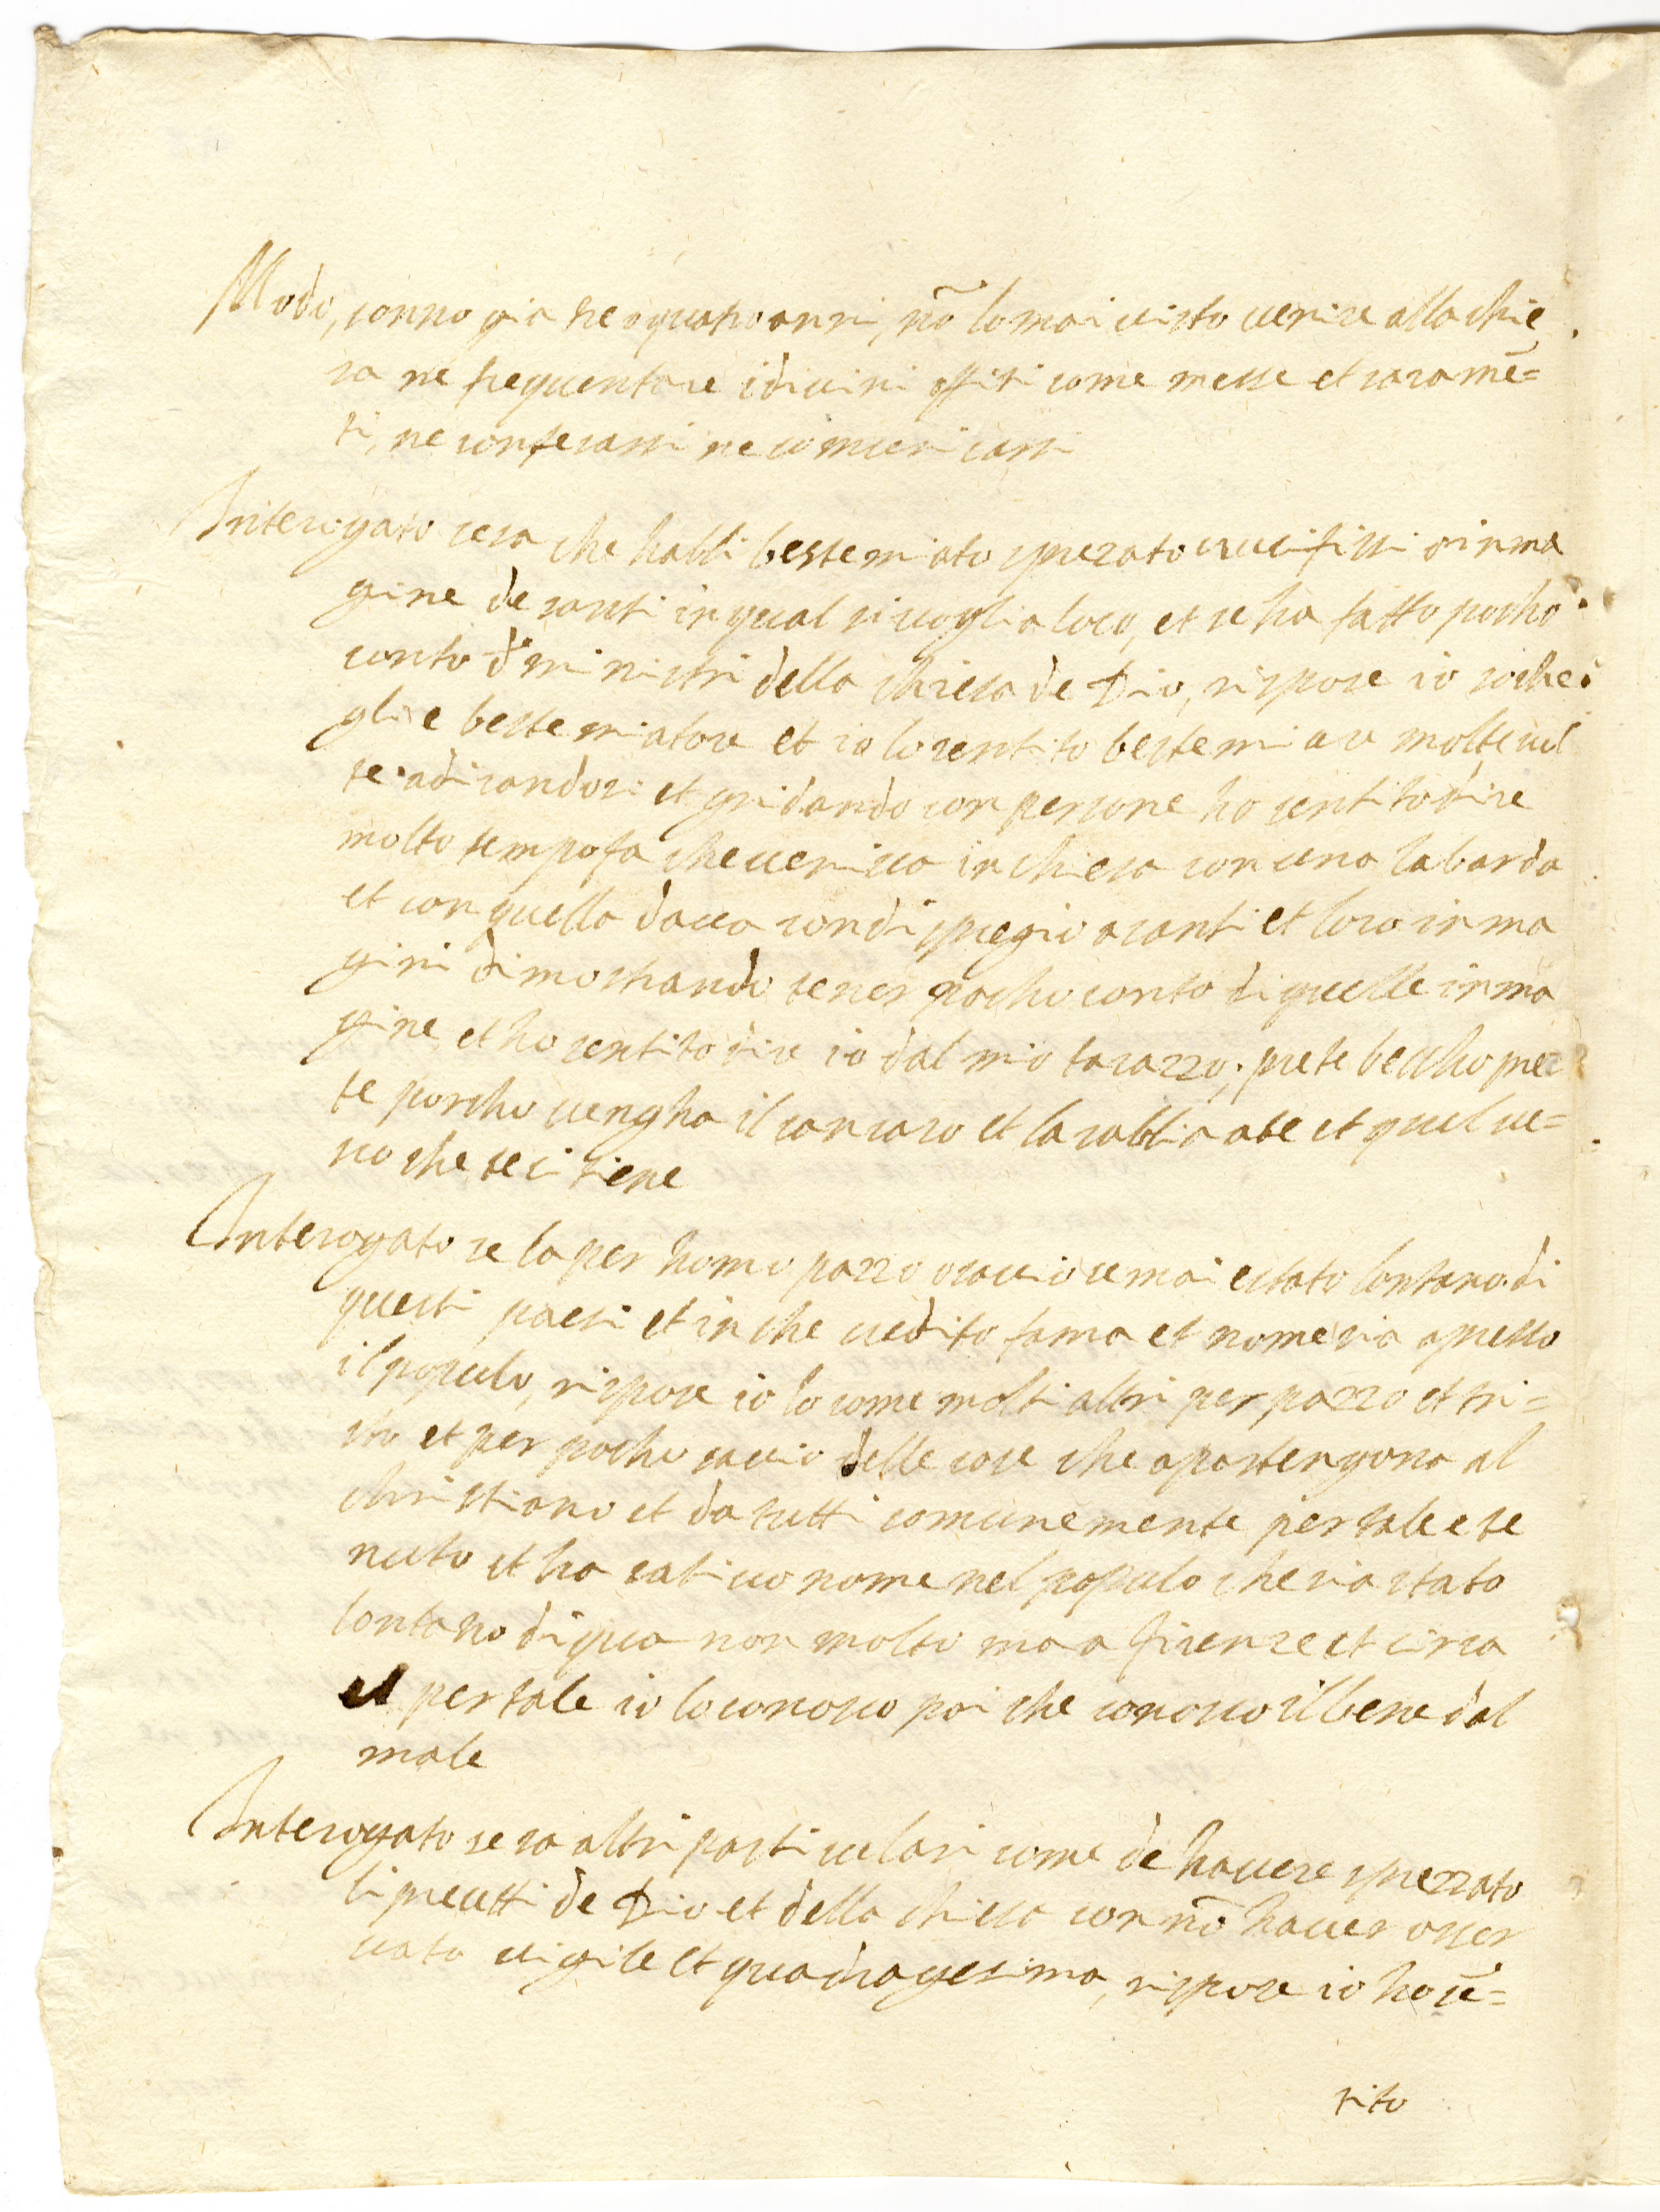 Modo, sonno gia tre o quatro anni, nō lo mai visto venire alla chie
sa ne frequentare i divini offiti come messe et sacramē=
ti, ne confesarsi ne comunicarsi
Interogato se sa che habbi bestemiato sprezato crucifissi o inma
gine de santi in qual si voglia loco, et se ha fatto pocho
conto di ministri della chiesa de Dio, rispose io so che
gli e bestemiatore et io lo sentito bestemiare molte vol
te adirandosi et gridando con persone ho sentito dire
molto tempo fa che veniva in chiesa con una labarda
et con quella dava con dispregio a santi et loro inma
gini dimostrando tener pocho conto di quelle inma
gine, et ho sentito dire io dal mio tarazzo, prete becho pre
te porcho vengha il cancaro et la rabbia a te et quel ve=
sco che te ci tiene
Interogato se la per homo pazzo o savio se mai e stato lontano di
questi paesi et in che credito fama et nome sia apresso
il populo, rispose io lo come molti altri per pazzo et tri=
sto et per pocho savio delle cose che apartengono al
christiano et da tutti comunemente per tale e te
nuto et ha cativo nome nel populo che sia stato
lontano di qua non molto ma a firenze et circa
et per tale io lo conosco poi che conosco il bene dal
male
Interogato se sa altri particulari come de havere sprezzato
li precetti de Dio et della chiesa con nō haver osser
vato vigile et quadragesima, rispose io ho sē=
tito